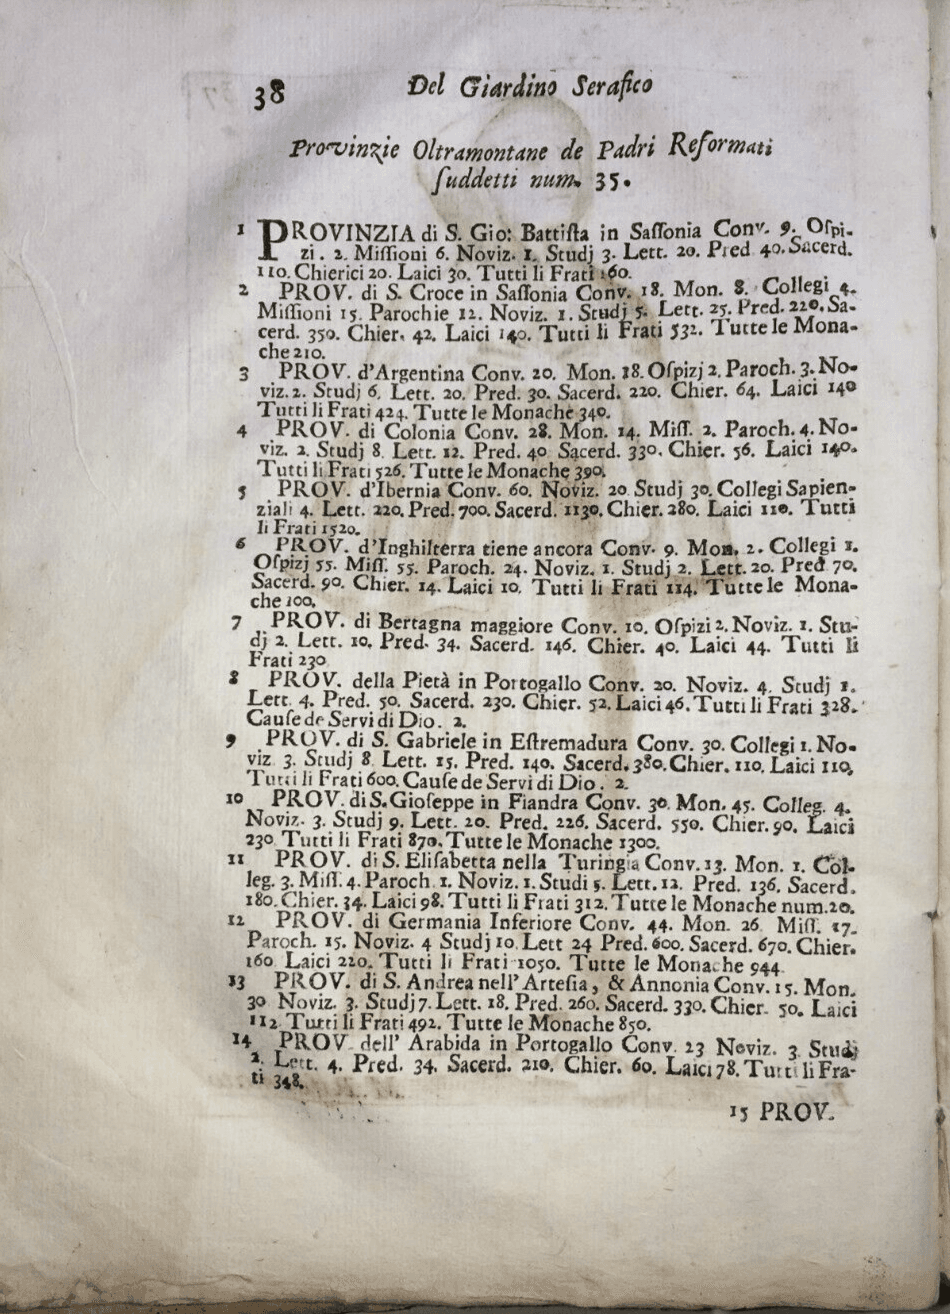 38 Del Giardino Serafico
Provinzie Oltramontane de Padri Reformati
ſuddetti num. 35.
1 PROVINZIA di S. Gio: Battiſta in Saſſonia Conv. 9. Oſpi-
zi. 2. Miſſioni 6. Noviz. 1. Studj 3. Lett. 20. Pred 40. Sacerd.
110. Chierici 20. Laici 30. Tutti li Frati 160.
2 PROV. di S. Croce in Saſſonia Conv. 18. Mon. 8. Collegi 4.
Miſſioni 15. Parochie 12. Noviz. 1. Studj 5. Lett. 25. Pred. 220. Sa-
cerd. 350. Chier. 42. Laici 140. Tutti li Frati 532. Tutte le Mona-
che 210.
3 PROV. d'Argentina Conv. 20. Mon. 18. Oſpizj 2. Paroch. 3. No-
viz. 2. Studj 6. Lett. 20. Pred. 30. Sacerd. 220. Chier. 64. Laici 140
Tutti li Frati 424. Tutte le Monache 340.
4 PROV. di Colonia Conv. 28. Mon. 14. Miſſ. 2. Paroch. 4. No-
viz. 2. Studj 8. Lett. 12. Pred. 40 Sacerd. 330. Chier. 56. Laici 140.
Tutti li Frati 526. Tutte le Monache 390.
5 PROV. d'Ibernia Conv. 60. Noviz. 20 Studj 30. Collegi Sapien-
ziali 4. Lett. 220. Pred. 700. Sacerd. 1130. Chier. 280. Laici 110. Tutti
li Frati 1520.
6 PROV. d'Inghilterra tiene ancora Conv. 9. Mon. 2. Collegi 1.
Oſpizj 55. Miſſ. 55. Paroch. 24. Noviz. 1. Studj 2. Lett. 20. Pred 70.
Sacerd. 90. Chier. 14. Laici 10. Tutti li Frati 114. Tutte le Mona-
che 100.
7 PROV. di Bertagna maggiore Conv. 10. Oſpizi 2. Noviz. 1. Stu-
dj 2. Lett. 10. Pred. 34. Sacerd. 146. Chier. 40. Laici 44. Tutti li
Frati 230
8 PROV. della Pietà in Portogallo Conv. 20. Noviz. 4. Studj 1.
Lett. 4. Pred. 50. Sacerd. 230. Chier. 52. Laici 46. Tutti li Frati 328.
Cauſe de Servi di Dio. 2.
9 PROV. di S. Gabriele in Eſtremadura Conv. 30. Collegi 1. No-
viz 3. Studj 8. Lett. 15. Pred. 140. Sacerd. 380. Chier. 110. Laici 110.
Tutti li Frati 600. Cauſe de Servi di Dio. 2.
10 PROV. di S. Gioſeppe in Fiandra Conv. 30. Mon. 45. Colleg. 4.
Noviz. 3. Studj 9. Lett. 20. Pred. 226. Sacerd. 550. Chier. 90. Laici
230 Tutti li Frati 870. Tutte le Monache 1300.
11 PROV. di S. Eliſabetta nella Turingia Conv. 13. Mon. 1. Col-
leg. 3. Miſſ. 4. Paroch 1. Noviz. 1. Studi 5. Lett. 12. Pred. 136. Sacerd.
180. Chier. 34. Laici 98. Tutti li Frati 312. Tutte le Monache num. 20.
12 PROV. di Germania Inferiore Conv. 44. Mon. 26 Miſſ. 17.
Paroch. 15. Noviz. 4 Studj 10. Lett 24 Pred. 600. Sacerd. 670. Chier.
160 Laici 220. Tutti li Frati 1050. Tutte le Monache 944.
13 PROV. di S. Andrea nell' Arteſia, & Annonia Conv. 15. Mon.
30 Noviz. 3. Studj 7. Lett. 18. Pred. 260. Sacerd. 330. Chier. 50. Laici
112 Tutti li Frati 492. Tutte le Monache 850.
14 PROV. dell' Arabida in Portogallo Conv. 23 Noviz. 3. Studj
2. Lett. 4. Pred. 34. Sacerd. 210. Chier. 60. Laici 78. Tutti li Fra-
ti 348.
15 PROV.